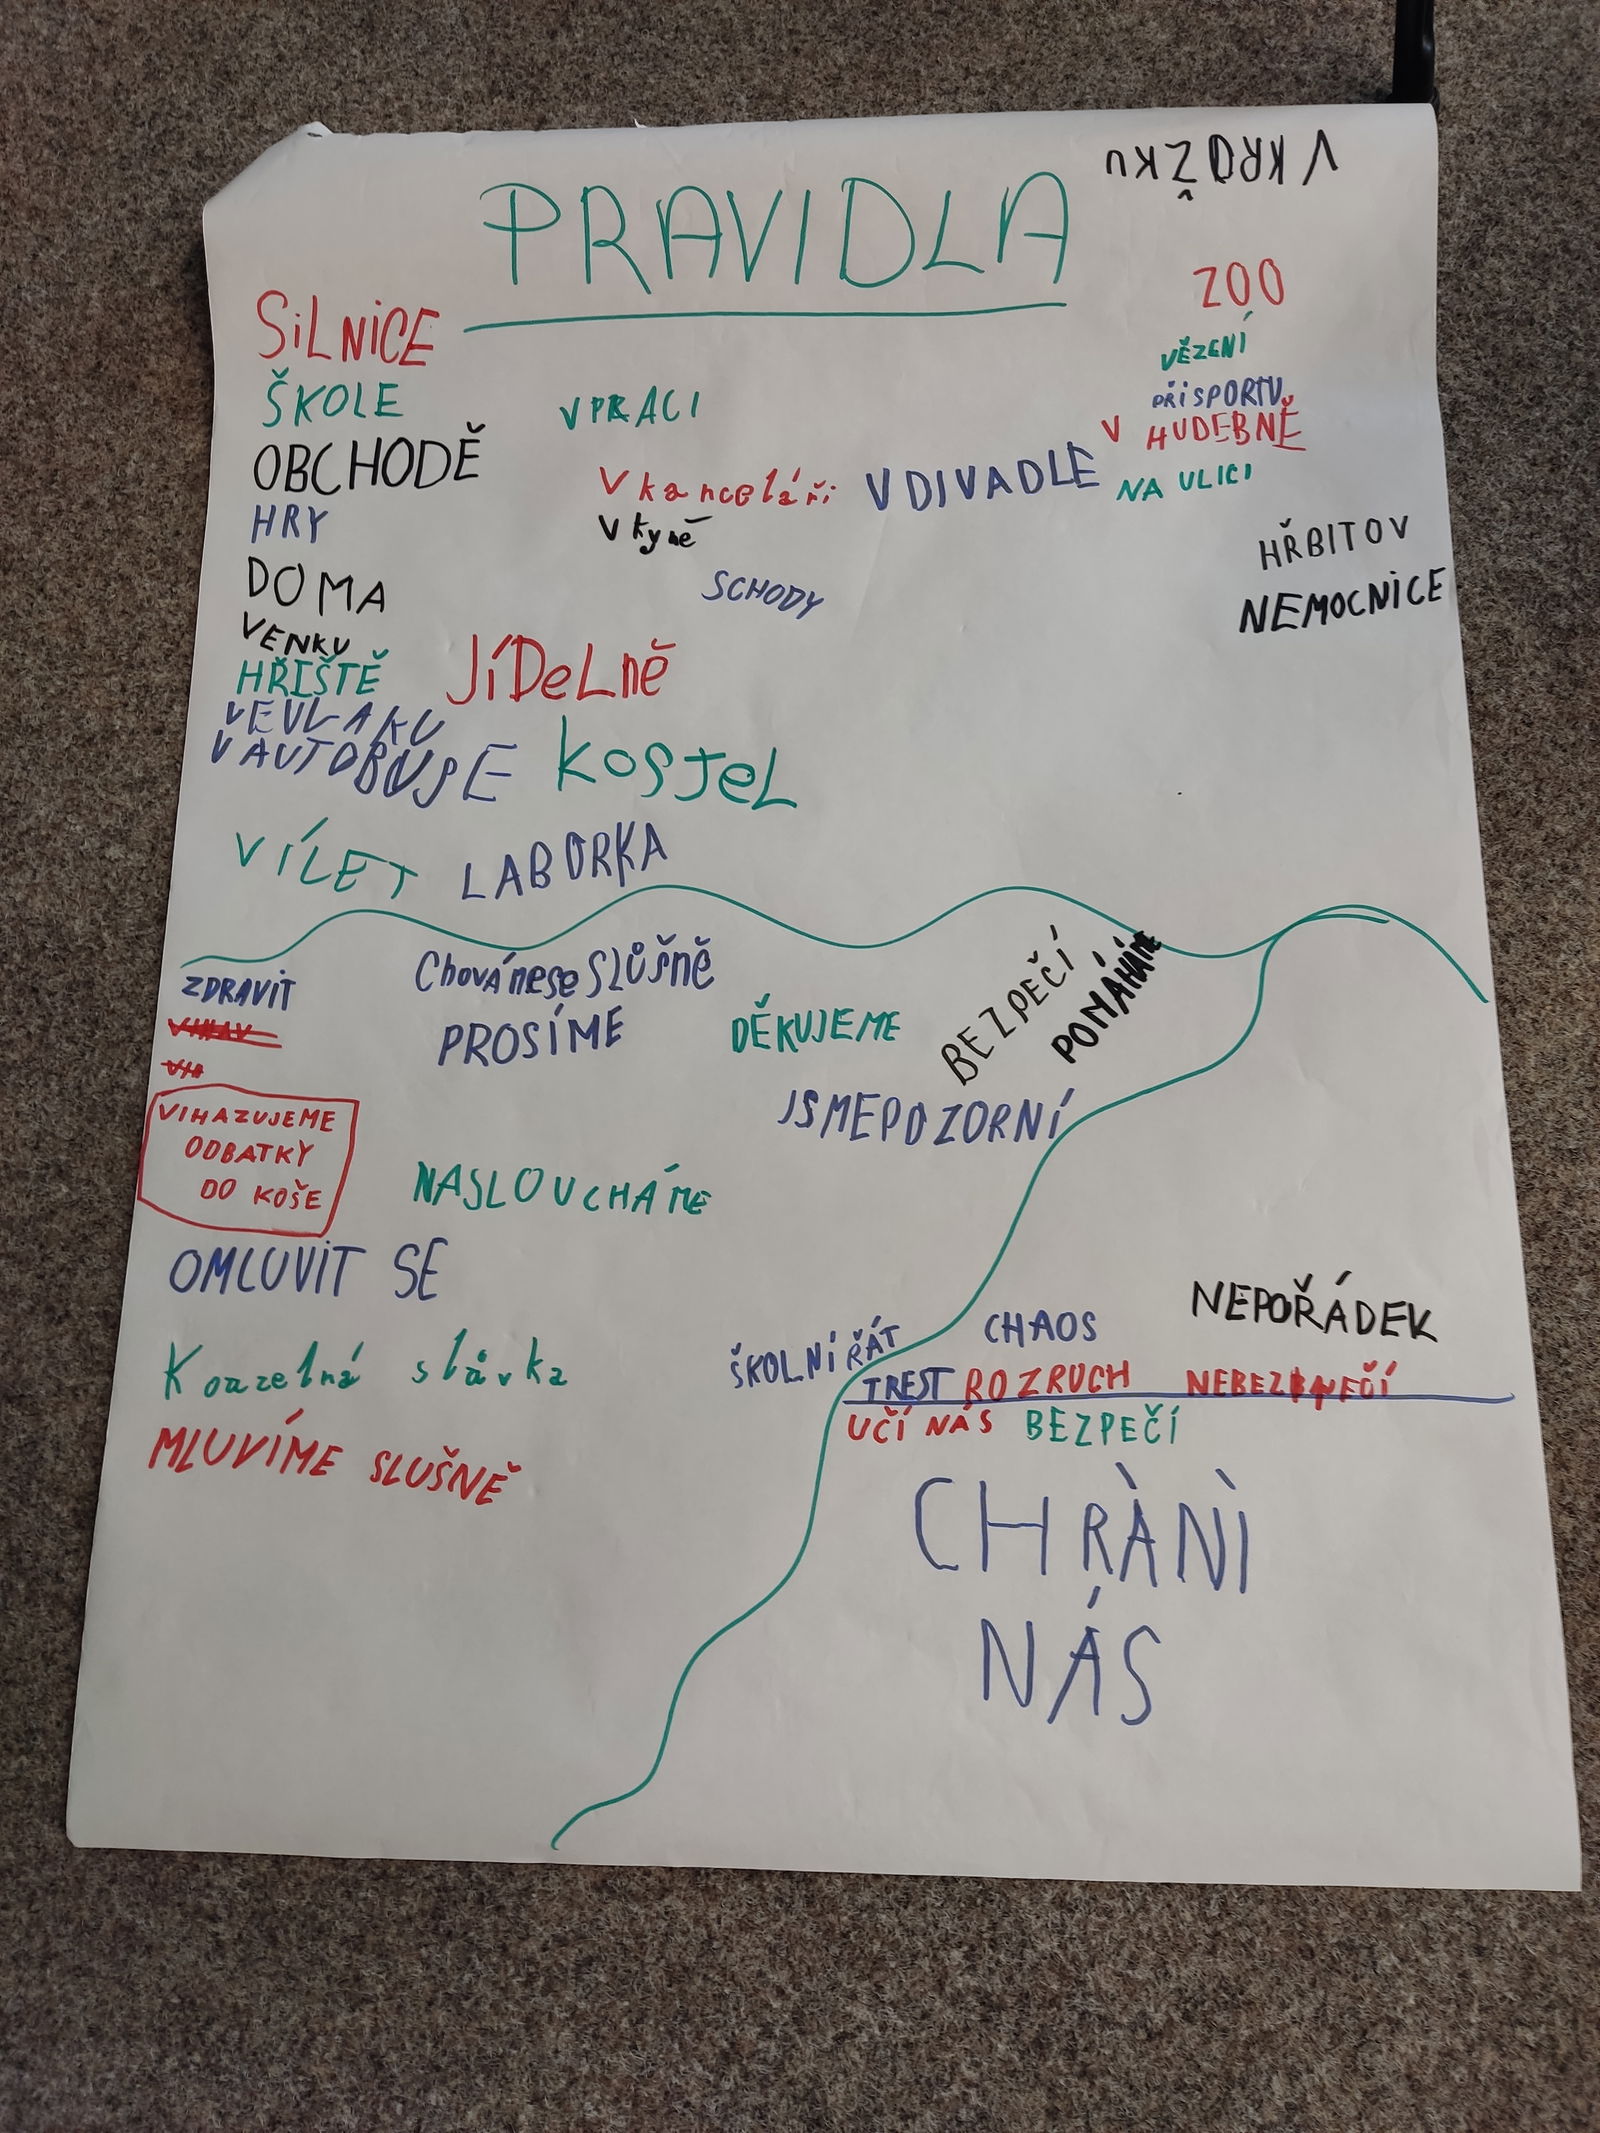 V KROŽKU
PRAVIDLA
ZOO
SiLNiCE
VĚZENÍ
ŠKOLE
V PRACI
PŘI SPORTU
V HUDEBNĚ
OBCHODĚ
V kanceláři
V DIVADLE
NA ULICI
HRY
V kyně
HŘBITOV
DOMA
SCHODY
NEMOCNiCE
VENKU
HŘIŠTĚ
JíDeLně
VEVLAKU
V AUTOBUSE
KOSTeL
VÍLET
LABORKA
ZDRAVIT
Chovánese SLŮŠně
BEZPEČÍ
POMÁHÁME
PROSÍME
DĚKUJEME
JSMEPOZORNÍ
VIHAZUJEME
ODBATKY
DO KOŠE
NASLOUCHÁME
OMLUVIT SE
CHAOS
NEPOŘÁDEK
Kouzelná slůvka
ŠKOLNÍ ŘÁT
TREST ROZRUCH
MLUVÍME SLUŠNĚ
UČÍ NÁS
BEZPEČÍ
CHRÀNÌ
NÁS